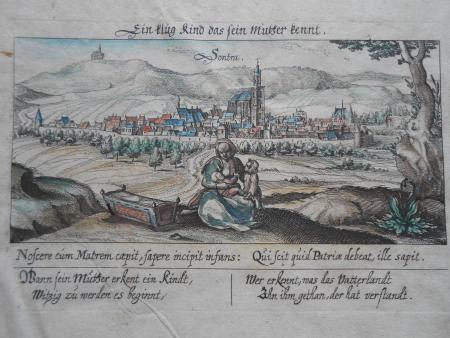 Ein klug Kind das sein Mutter kennt.
Sontra.
Noscere cum Matrem cæpit, sapere incipit infans: Qui scit quid Patriæ debeat, ille sapit.
Wann sein Mutter erkent ein Kindt,
Witzig zu werden es beginnt,
Wer erkennt, was das Vatterlandt
Ahn ihm gethan, der hat verstandt.